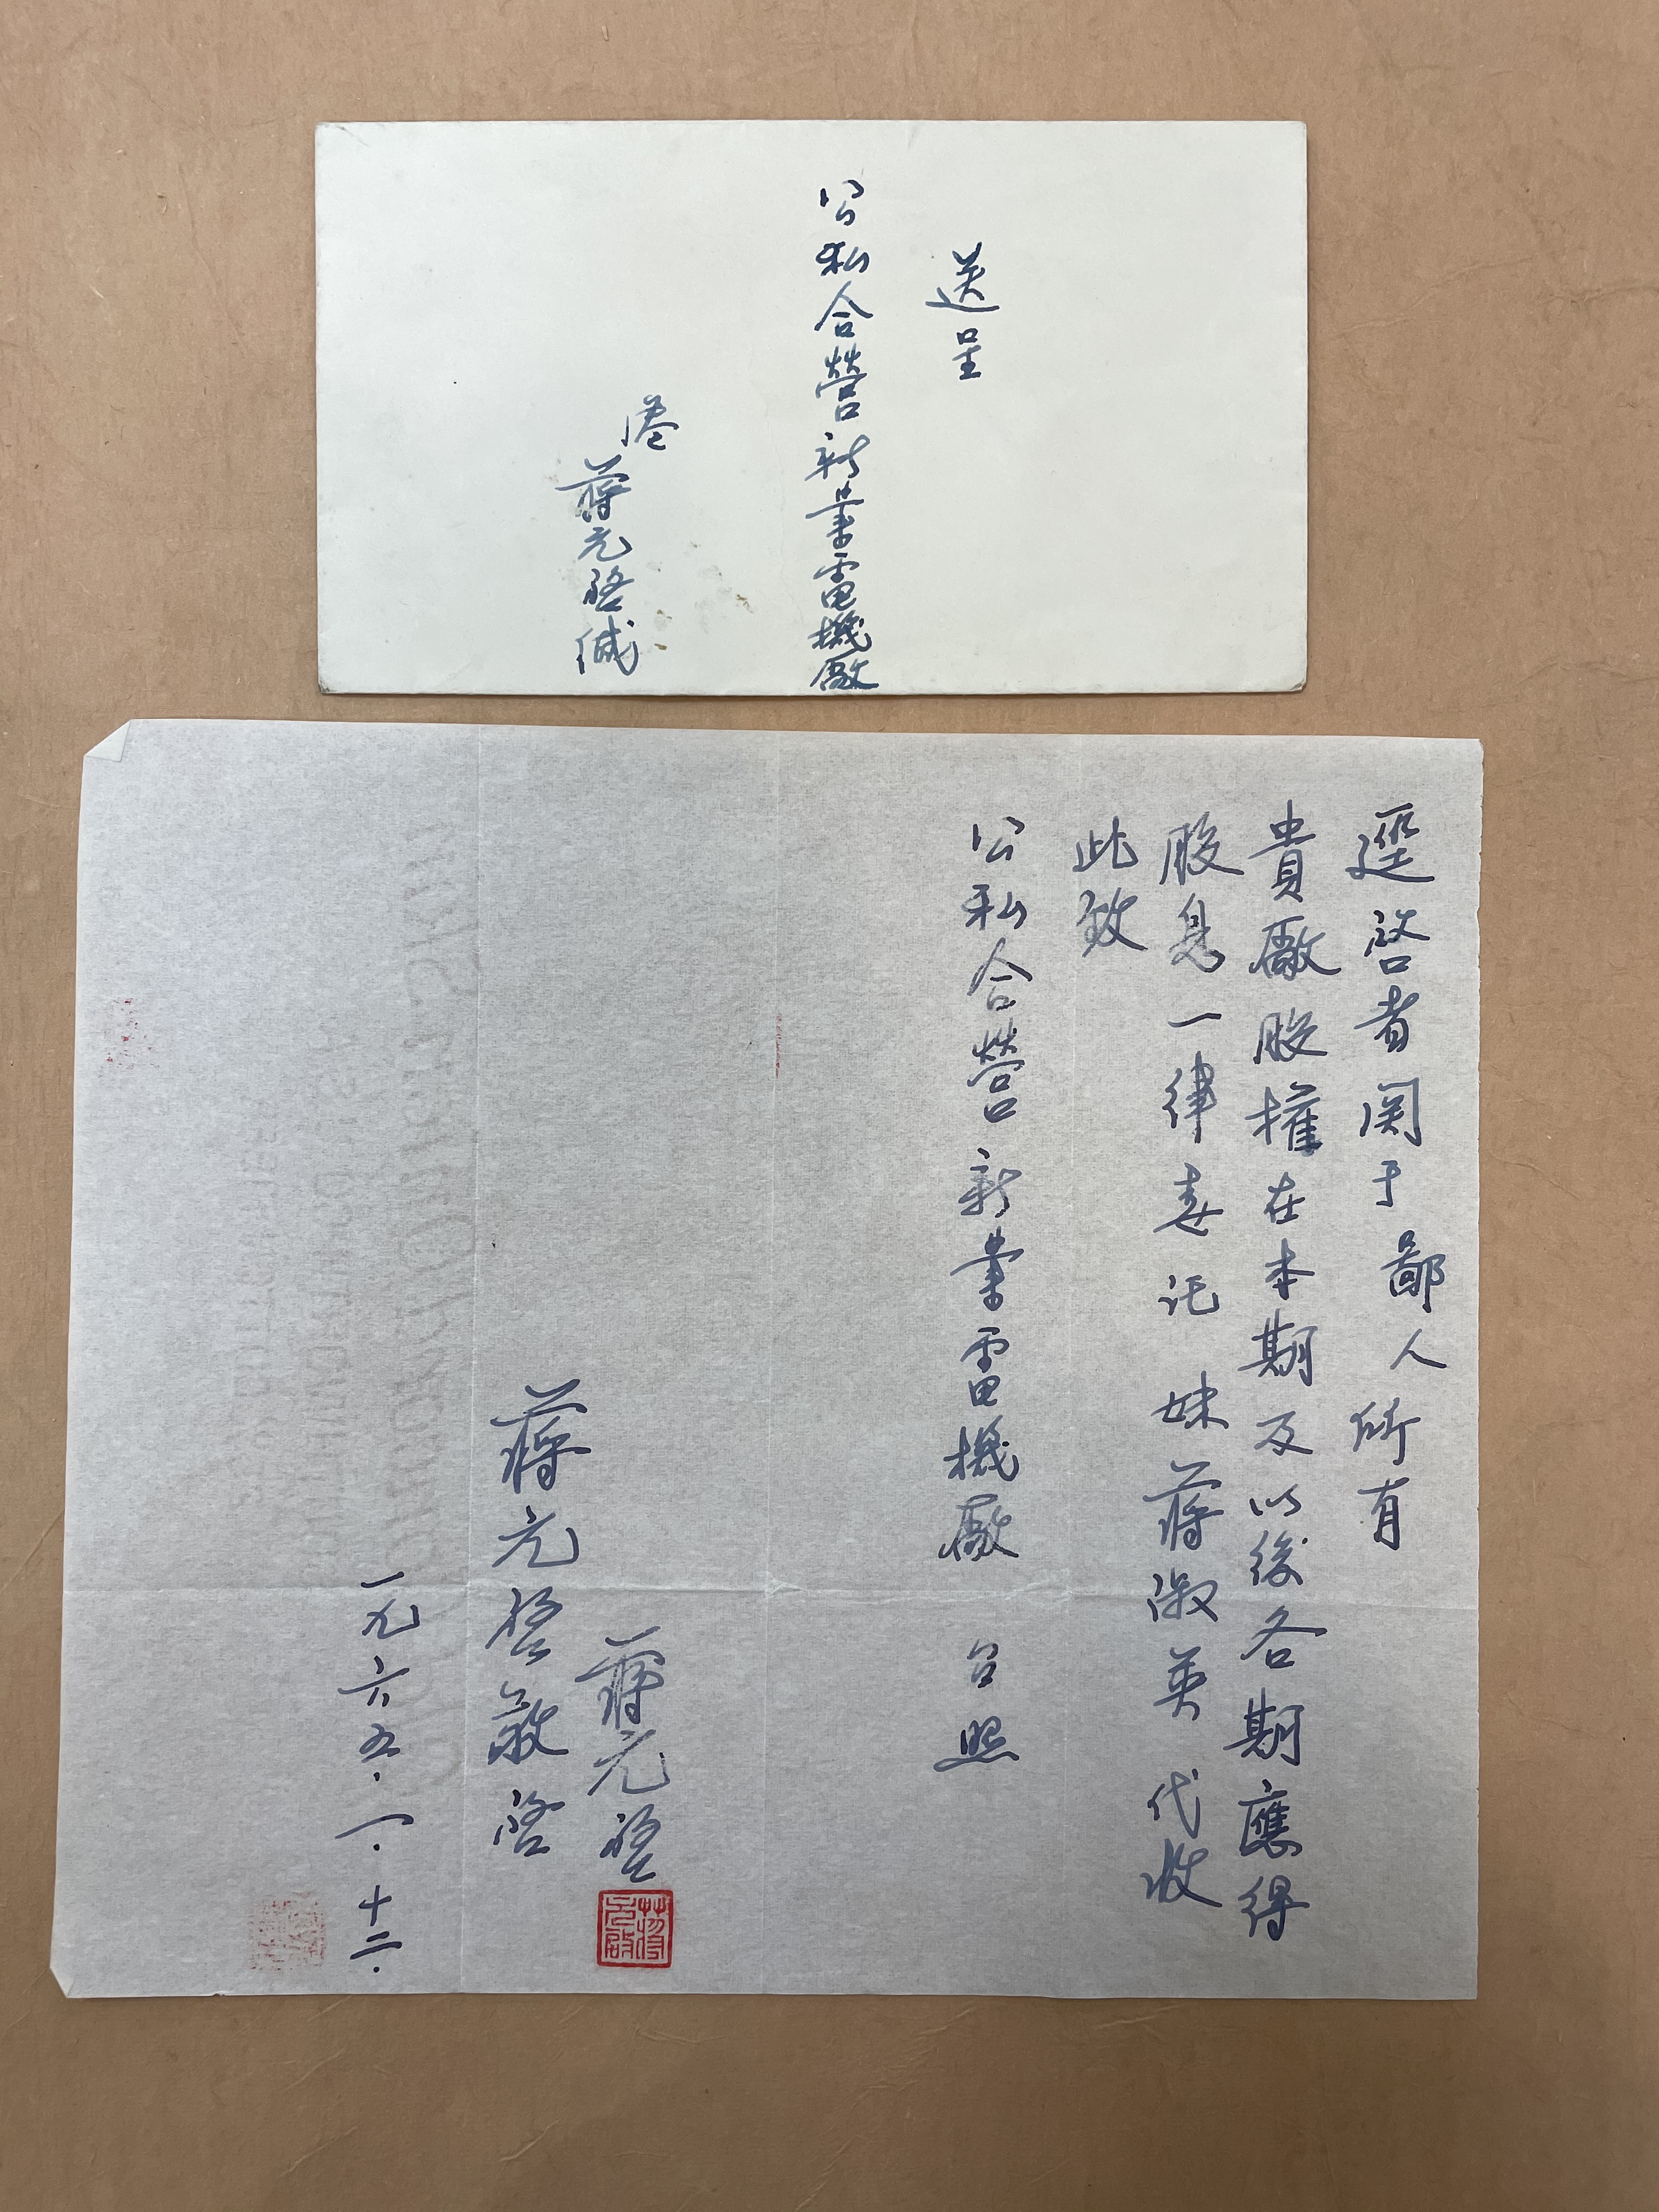 送呈
公私合營新業電機廠
港
蔣元啓緘
逕啓者関于鄙人所有
貴廠股權在本期及以後各期應得
股息一律委託妹蔣淑英代收
此致
公私合營新業電機廠 台照
蔣元啓
蔣元啓敬啓
一九六五.一.十二.